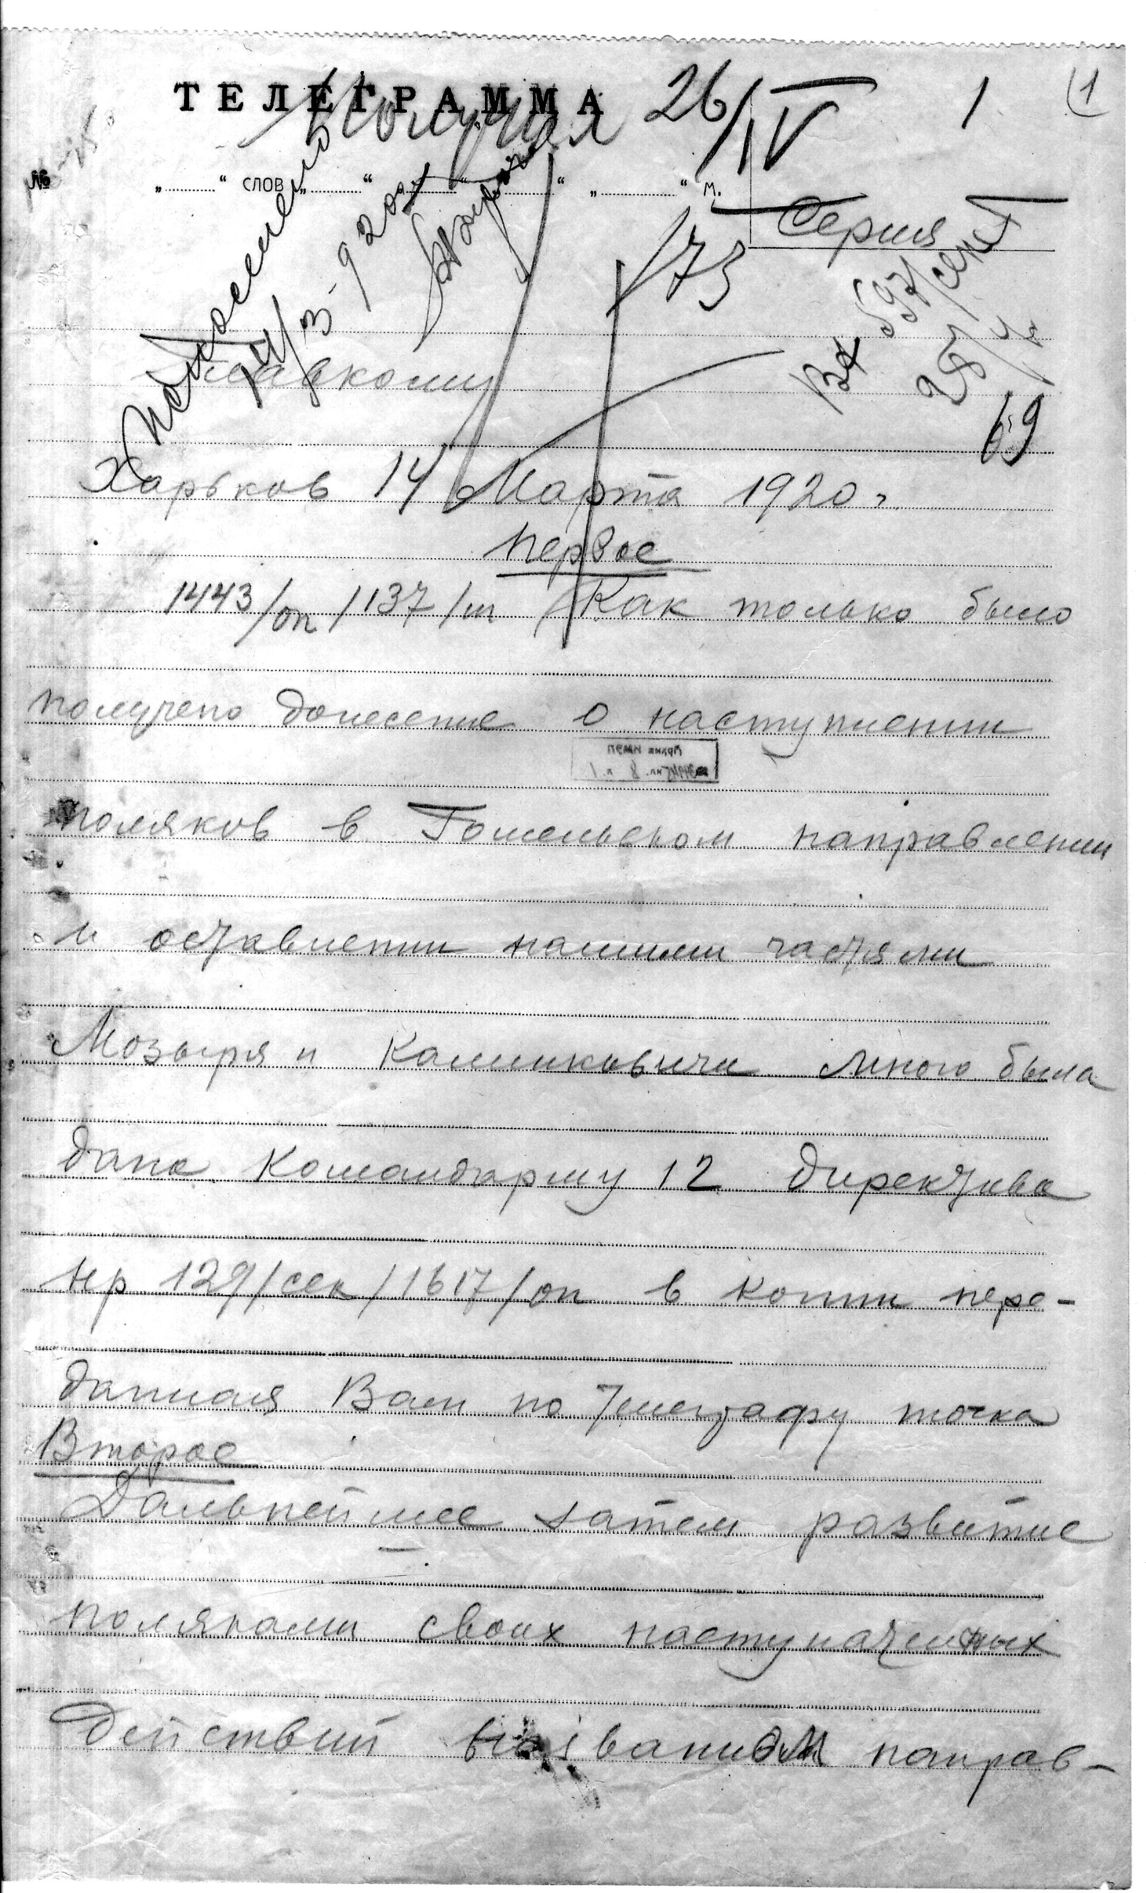 ТЕЛЕГРАММА
Получил 26/IV 1 1
№
„ “ слов „ “ „ “ „ “ м.
Серия
173
14/3-920
Вх 597/сек
28/4
69
Главкому
Харьков 14 Марта 1920 г.
Первое
1443/оп /137/ш / Как только было
получено донесение о наступлении
поляков в Гомельском направлении
и оставлении нашими частями
Мозыря и Калинковичи мною была
дана Командарму 12 директива
нр 129/сек/1617/оп в копии пере-
данная Вам по телеграфу точка
Второе
Дальнейшее затем развитие
поляками своих наступательных
действий направ-